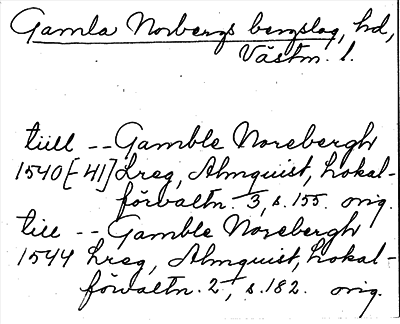 Gamla Norbergs bergslag, hd,
Västm. l.
till -- Gamble Norebergh
1540[-41] Lreg, Almquist, Lokal-
förvaltn. 3, s. 155. orig.
till -- Gamble Norebergh
1544 Lreg, Almquist, Lokal-
förvaltn. 2, s. 182. orig.